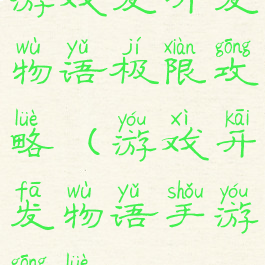 游戏发开发
wù yǔ jí xiàn gōng
物语极限攻
lüè yóu xì kāi
略（游戏开
fā wù yǔ shǒu yóu
发物语手游
gōng lüè